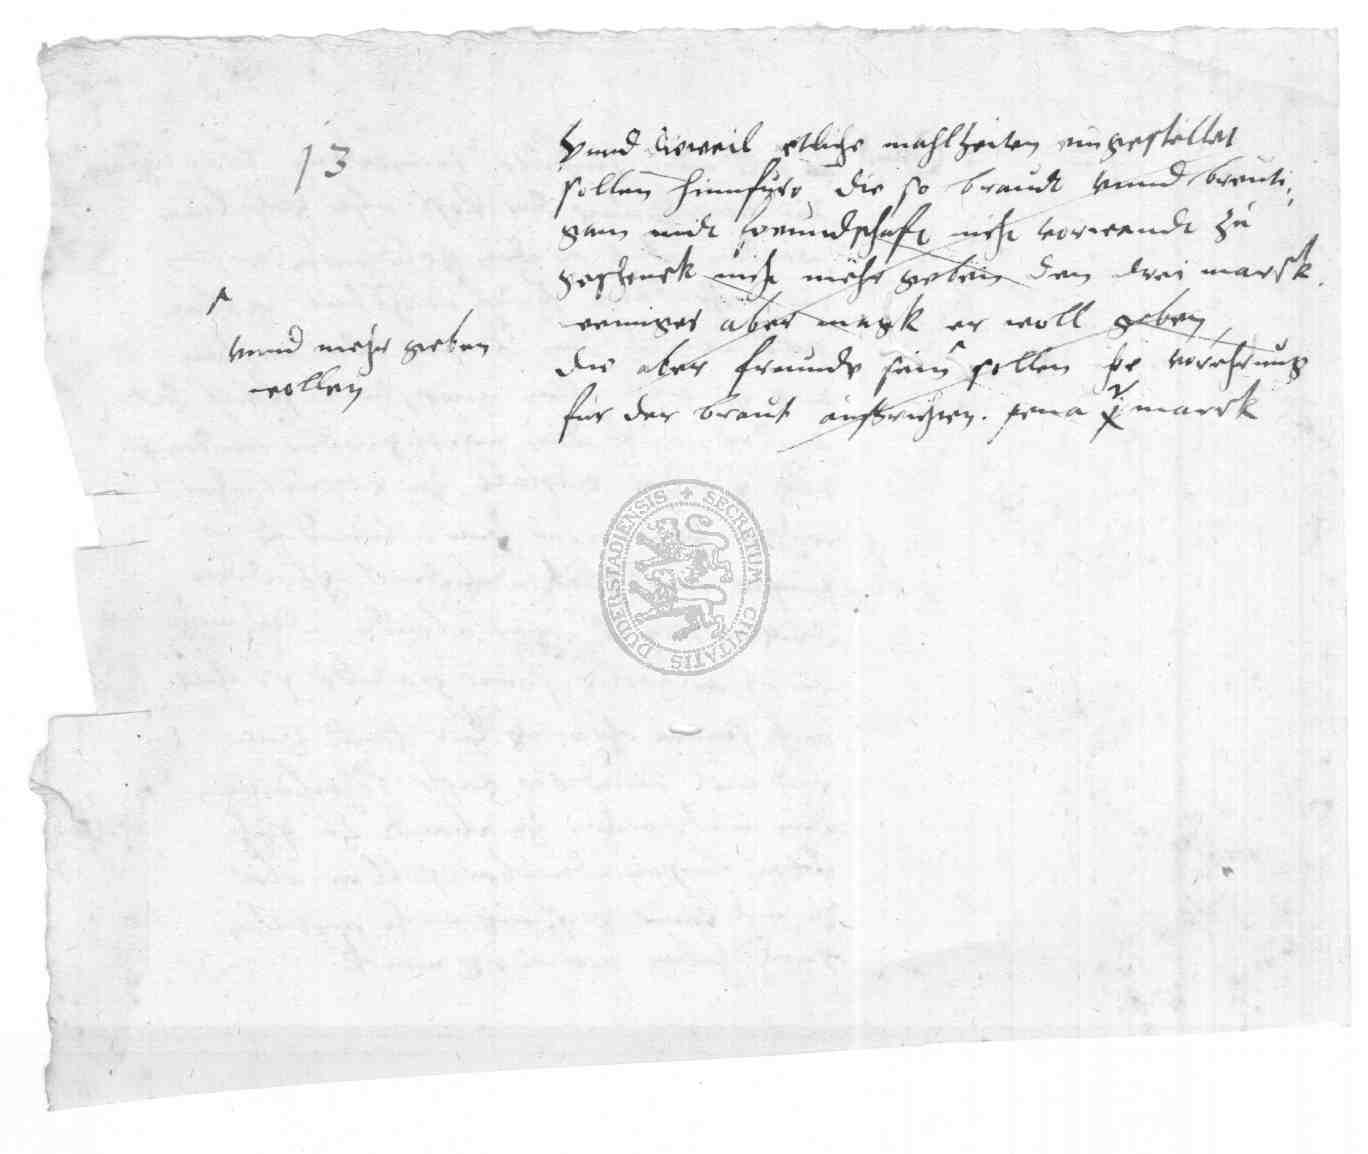 13
Vnnd dieweil etliche mahlzeiten eingestellet
sollen hinnfuro die so braudt vnnd breuti,,
gam midt freundschaft nicht vorwandt zu
geschenck nicht mehr geben den drei marck.
weiniger aber magk er woll geben
die aber freunde sein ^ sollen die vorehrung
fur der braut aufrichten. pena j marck
^
vnnd mehr geben
wollen
SECRETUM CIVITATIS DUDERSTADIENSIS